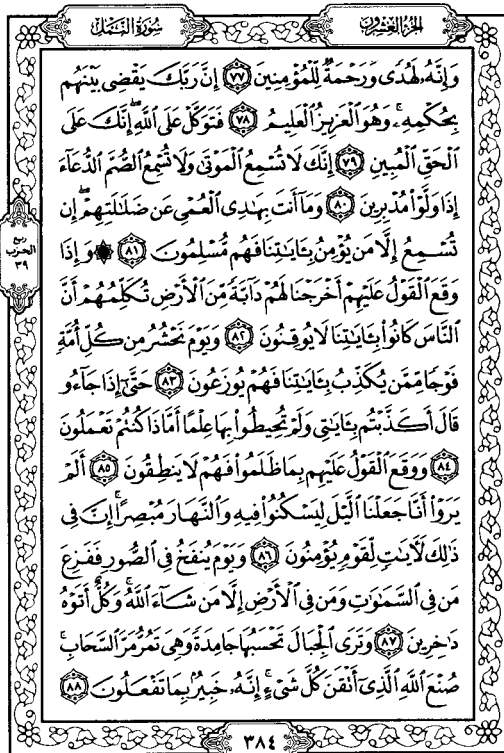 الجزء العشرون
سورة النمل
وَإِنَّهُۥ لَهُدًى وَرَحْمَةٌ لِّلْمُؤْمِنِينَ ٧٧ إِنَّ رَبَّكَ يَقْضِى بَيْنَهُم
بِحُكْمِهِۦ ۚ وَهُوَ ٱلْعَزِيزُ ٱلْعَلِيمُ ٧٨ فَتَوَكَّلْ عَلَى ٱللَّهِ ۖ إِنَّكَ عَلَى
ٱلْحَقِّ ٱلْمُبِينِ ٧٩ إِنَّكَ لَا تُسْمِعُ ٱلْمَوْتَىٰ وَلَا تُسْمِعُ ٱلصُّمَّ ٱلدُّعَآءَ
إِذَا وَلَّوْا۟ مُدْبِرِينَ ٨٠ وَمَآ أَنتَ بِهَٰدِى ٱلْعُمْىِ عَن ضَلَٰلَتِهِمْ ۖ إِن
تُسْمِعُ إِلَّا مَن يُؤْمِنُ بِـَٔايَٰتِنَا فَهُم مُّسْلِمُونَ ٨١ ۞ وَإِذَا
وَقَعَ ٱلْقَوْلُ عَلَيْهِمْ أَخْرَجْنَا لَهُمْ دَآبَّةً مِّنَ ٱلْأَرْضِ تُكَلِّمُهُمْ أَنَّ
ٱلنَّاسَ كَانُوا۟ بِـَٔايَٰتِنَا لَا يُوقِنُونَ ٨٢ وَيَوْمَ نَحْشُرُ مِن كُلِّ أُمَّةٍ
فَوْجًا مِّمَّن يُكَذِّبُ بِـَٔايَٰتِنَا فَهُمْ يُوزَعُونَ ٨٣ حَتَّىٰٓ إِذَا جَآءُو
قَالَ أَكَذَّبْتُم بِـَٔايَٰتِى وَلَمْ تُحِيطُوا۟ بِهَا عِلْمًا أَمَّاذَا كُنتُمْ تَعْمَلُونَ
٨٤ وَوَقَعَ ٱلْقَوْلُ عَلَيْهِم بِمَا ظَلَمُوا۟ فَهُمْ لَا يَنطِقُونَ ٨٥ أَلَمْ
يَرَوْا۟ أَنَّا جَعَلْنَا ٱلَّيْلَ لِيَسْكُنُوا۟ فِيهِ وَٱلنَّهَارَ مُبْصِرًا ۚ إِنَّ فِى
ذَٰلِكَ لَءَايَٰتٍ لِّقَوْمٍ يُؤْمِنُونَ ٨٦ وَيَوْمَ يُنفَخُ فِى ٱلصُّورِ فَفَزِعَ
مَن فِى ٱلسَّمَٰوَٰتِ وَمَن فِى ٱلْأَرْضِ إِلَّا مَن شَآءَ ٱللَّهُ ۚ وَكُلٌّ أَتَوْهُ
دَٰخِرِينَ ٨٧ وَتَرَى ٱلْجِبَالَ تَحْسَبُهَا جَامِدَةً وَهِىَ تَمُرُّ مَرَّ ٱلسَّحَابِ ۚ
صُنْعَ ٱللَّهِ ٱلَّذِىٓ أَتْقَنَ كُلَّ شَىْءٍ ۚ إِنَّهُۥ خَبِيرٌۢ بِمَا تَفْعَلُونَ ٨٨
ربع
الحزب
٣٩
٣٨٤